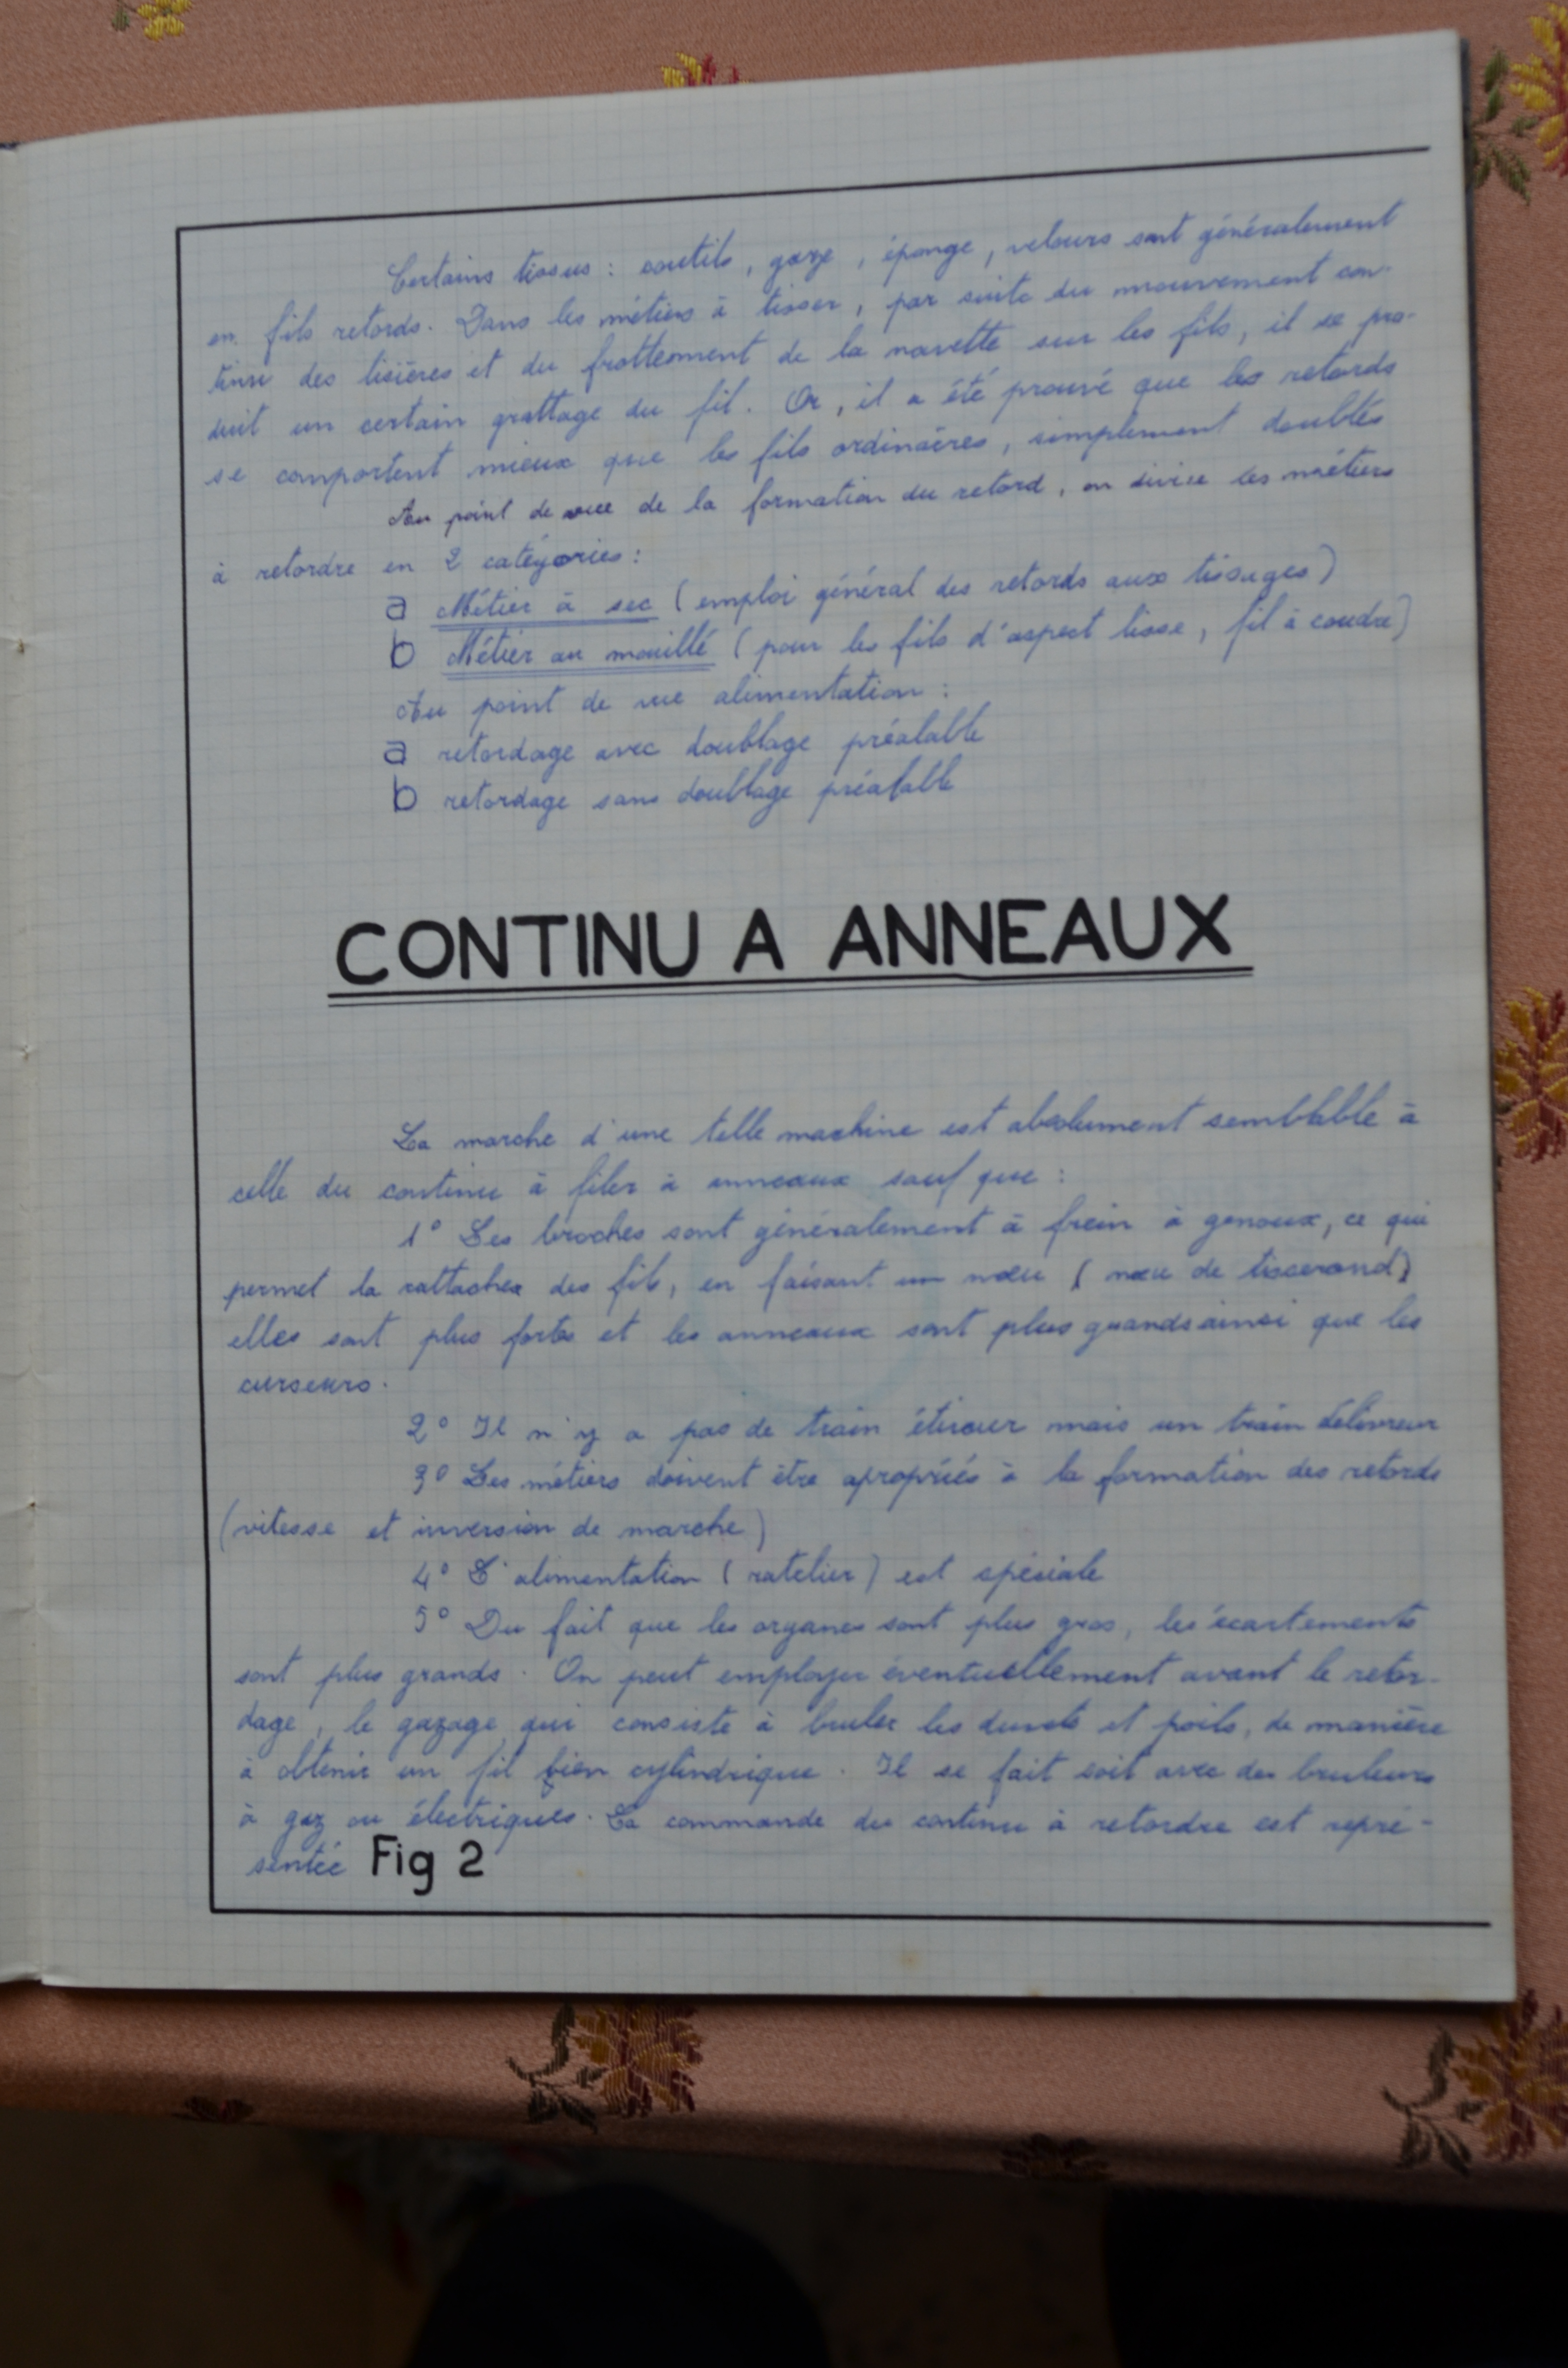 Certains tissus : coutils, gaze, éponge, velours sont généralement
en fils retords. Dans les métiers à tisser, par suite du mouvement con-
tinu des lisières et du frottement de la navette sur les fils, il se pro-
duit un certain grattage du fil. Or, il a été prouvé que les retords
se comportent mieux que les fils ordinaires, simplement doublés
Au point de vue de la formation du retord, on divise les métiers
à retordre en 2 catégories :
a Métier à sec (emploi général des retords aux tissages)
b Métier au mouillé (pour les fils d'aspect lisse, fil à coudre)
Au point de vue alimentation :
a retordage avec doublage préalable
b retordage sans doublage préalable
CONTINU A ANNEAUX
La marche d'une telle machine est absolument semblable à
celle du continu à filer à anneaux sauf que :
1° Les broches sont généralement à frein à genoux, ce qui
permet la rattacher des fils, en faisant un nœu (nœu de tisserand)
elles sont plus fortes et les anneaux sont plus grands ainsi que les
curseurs.
2° Il n'y a pas de train étireur mais un train délivreur
3° Les métiers doivent être apropriés à la formation des retords
(vitesse et inversion de marche)
4° L'alimentation (ratelier) est spéciale
5° Du fait que les organes sont plus gros, les écartements
sont plus grands. On peut employer éventuellement avant le retor-
dage, le gazage qui consiste à bruler les duvets et poils, de manière
à obtenir un fil bien cylindrique. Il se fait soit avec des bruleurs
à gaz ou électriques. La commande du continu à retordre est repré-
sentée Fig 2